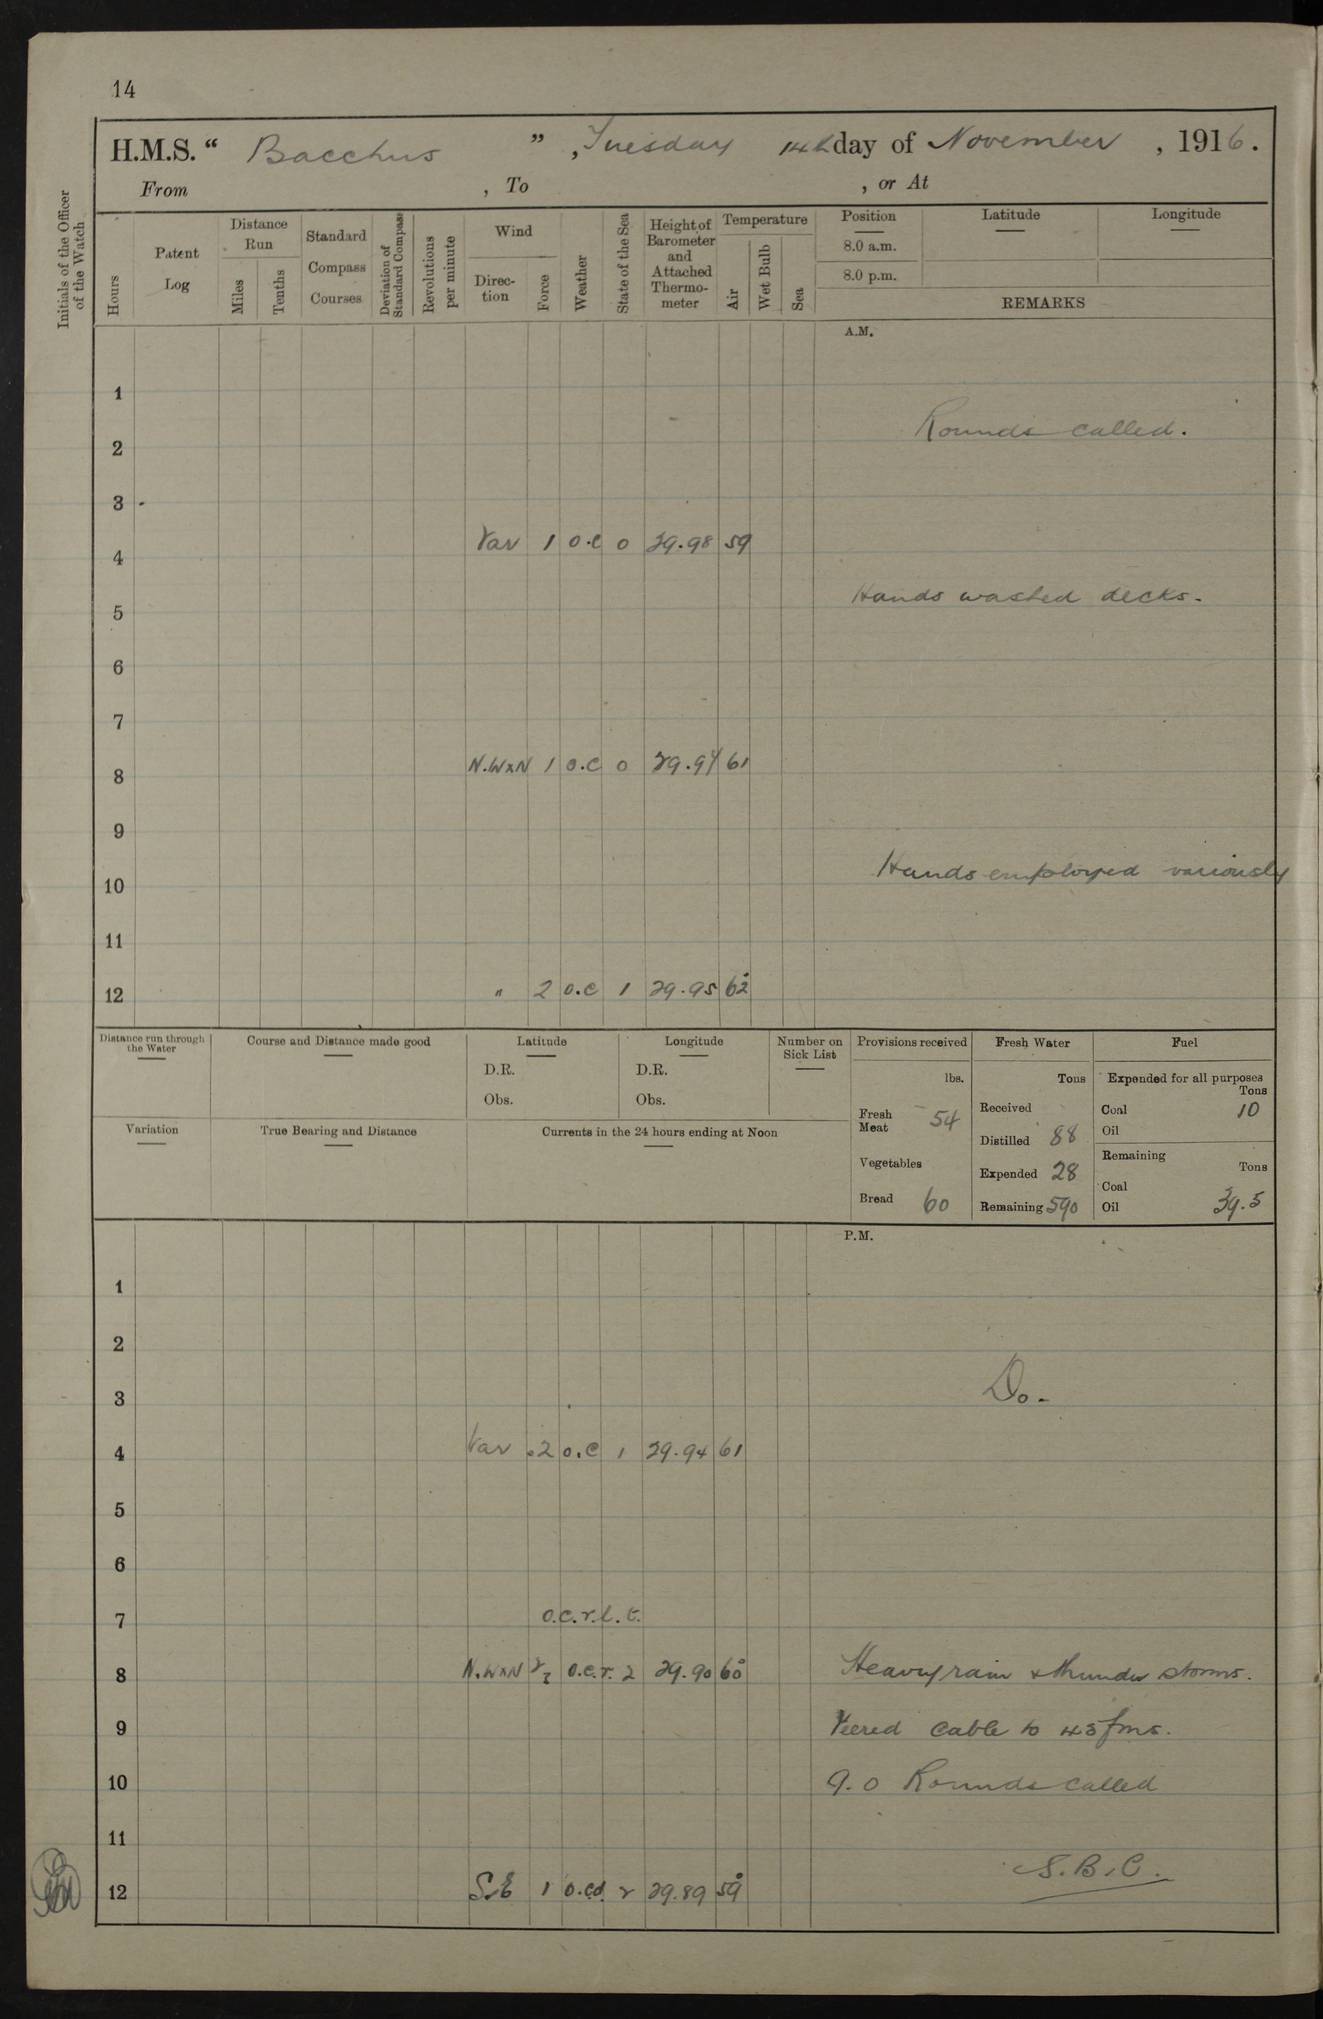 14
H.M.S. “ Bacchus ” , Tuesday 14th day of November , 1916.
From , To , or At
Initials of the Officer of the Watch
Hours
Patent Log
Distance Run
Miles
Tenths
Standard Compass Courses
Deviation of Standard Compass
Revolutions per minute
Wind
Direction
Force
Weather
State of the Sea
Height of Barometer and Attached Thermometer
Temperature
Air
Wet Bulb
Sea
Position
8.0 a.m.
8.0 p.m.
Latitude
Longitude
REMARKS
A.M.
1
Rounds called.
2
3
4 Var 1 o.c 0 29.98 59
Hands washed decks.
5
6
7
8 N.WxN 1 o.c 0 29.94 61
9
Hands employed variously
10
11
12 " 2 o.c 1 29.95 62
Distance run through the Water
Course and Distance made good
Latitude
D.R.
Obs.
Longitude
D.R.
Obs.
Number on Sick List
Variation
True Bearing and Distance
Currents in the 24 hours ending at Noon
Provisions received
lbs.
Fresh Meat 54
Vegetables
Bread 60
Fresh Water
Tons
Received
Distilled 88
Expended 28
Remaining 590
Fuel
Expended for all purposes
Tons
Coal 10
Oil
Remaining
Tons
Coal
Oil 39.5
P.M.
1
2
3 Do -
4 Var 2 o.c 1 29.94 61
5
6
7 o.c.r.l.t.
8 N.WxN o.c.r. 2 29.90 60 Heavy rain & thunder storms.
9 Veered cable to 45 fms.
10 9.0 Rounds called
11
S.B.C.
12 S.E 1 o.cd. 2 29.89 59